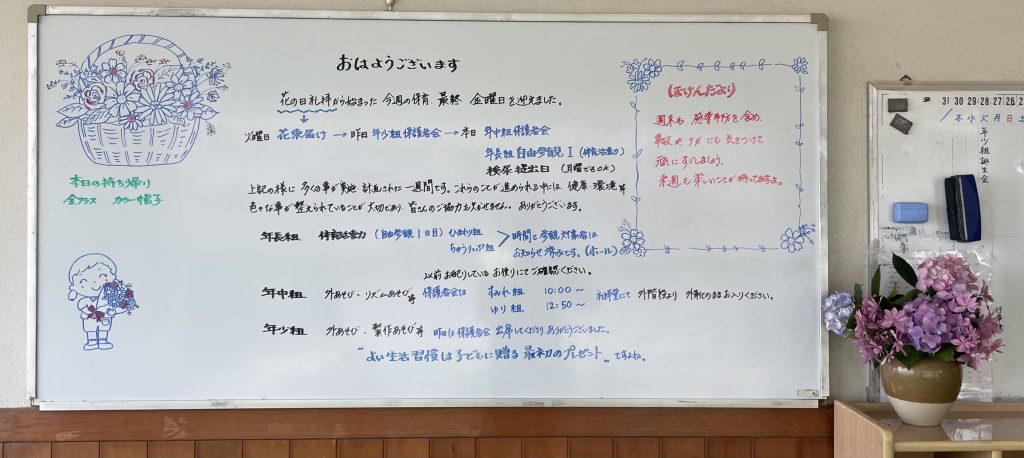 おはようございます
花の日礼拝から始まった 今週の保育 最終 金曜日を迎えました。
火曜日 花束届け → 昨日 年少組保護者会 → 本日 年中組保護者会
年長組 自由参観Ⅰ (体育活動)
検尿提出日 (月曜でもOK)
上記の様に 多くの事が実施 計画された一週間です。これらのことが進められる中には、健康 環境等
色々な事が整えられていることが大切であり、皆さんのご協力も欠かせません。ありがとうございます。
年長組 体育活動 (自由参観1日目) ひまわり組
ちゅうりっぷ組
時間と参観対象者は
お知らせ済みです。(ホール)
以前お配りしているお便りにてご確認ください。
年中組 外あそび・リズムあそび等 保護者会は すみれ組 10:00~
ゆり組 12:50~
礼拝堂にて 外階段より 外靴のままお入りください。
年少組 外あそび・製作あそび等 昨日は保護者会 出席してくださり、ありがとうございました。
"よい生活習慣は子どもに贈る 最初のプレゼント" ですよね。
本日の持ち帰り
全クラス カラー帽子
ほけんだより
週末も 感染予防を含め、
事故やケガにも気をつけて
元気にすごしましょう。
来週も楽しいことが待ってますよ。
31 30 29 28 27 26
木 水 火 月 日 土
年少組誕生会